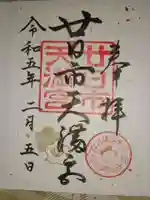 奉拝
廿日市天満宮
廿日市
天満宮
令和五年二月五日